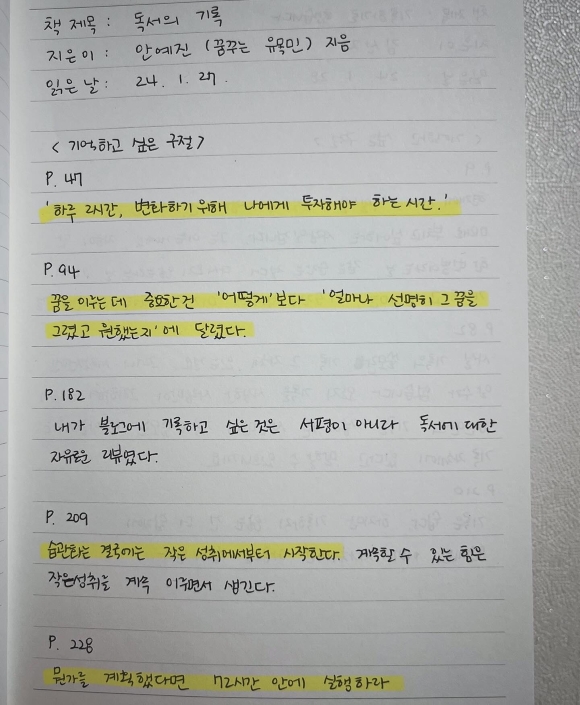 책 제목 : 독서의 기록
지은이 : 안예진 (꿈꾸는 유목민) 지음
읽은 날 : 24. 1. 27.
< 기억하고 싶은 구절 >
P. 47
'하루 2시간, 변화하기 위해 나에게 투자해야 하는 시간.'
P. 94
꿈을 이루는 데 중요한 건 '어떻게'보다 '얼마나 선명히 그 꿈을
그렸고 원했는지'에 달렸다.
P. 182
내가 블로그에 기록하고 싶은 것은 서평이 아니라 독서에 대한
자유로운 리뷰였다.
P. 209
습관화는 결국에는 작은 성취에서부터 시작한다. 계속할 수 있는 힘은
작은성취를 계속 이루면서 생긴다.
P. 228
뭔가를 계획했다면 72시간 안에 실행하라